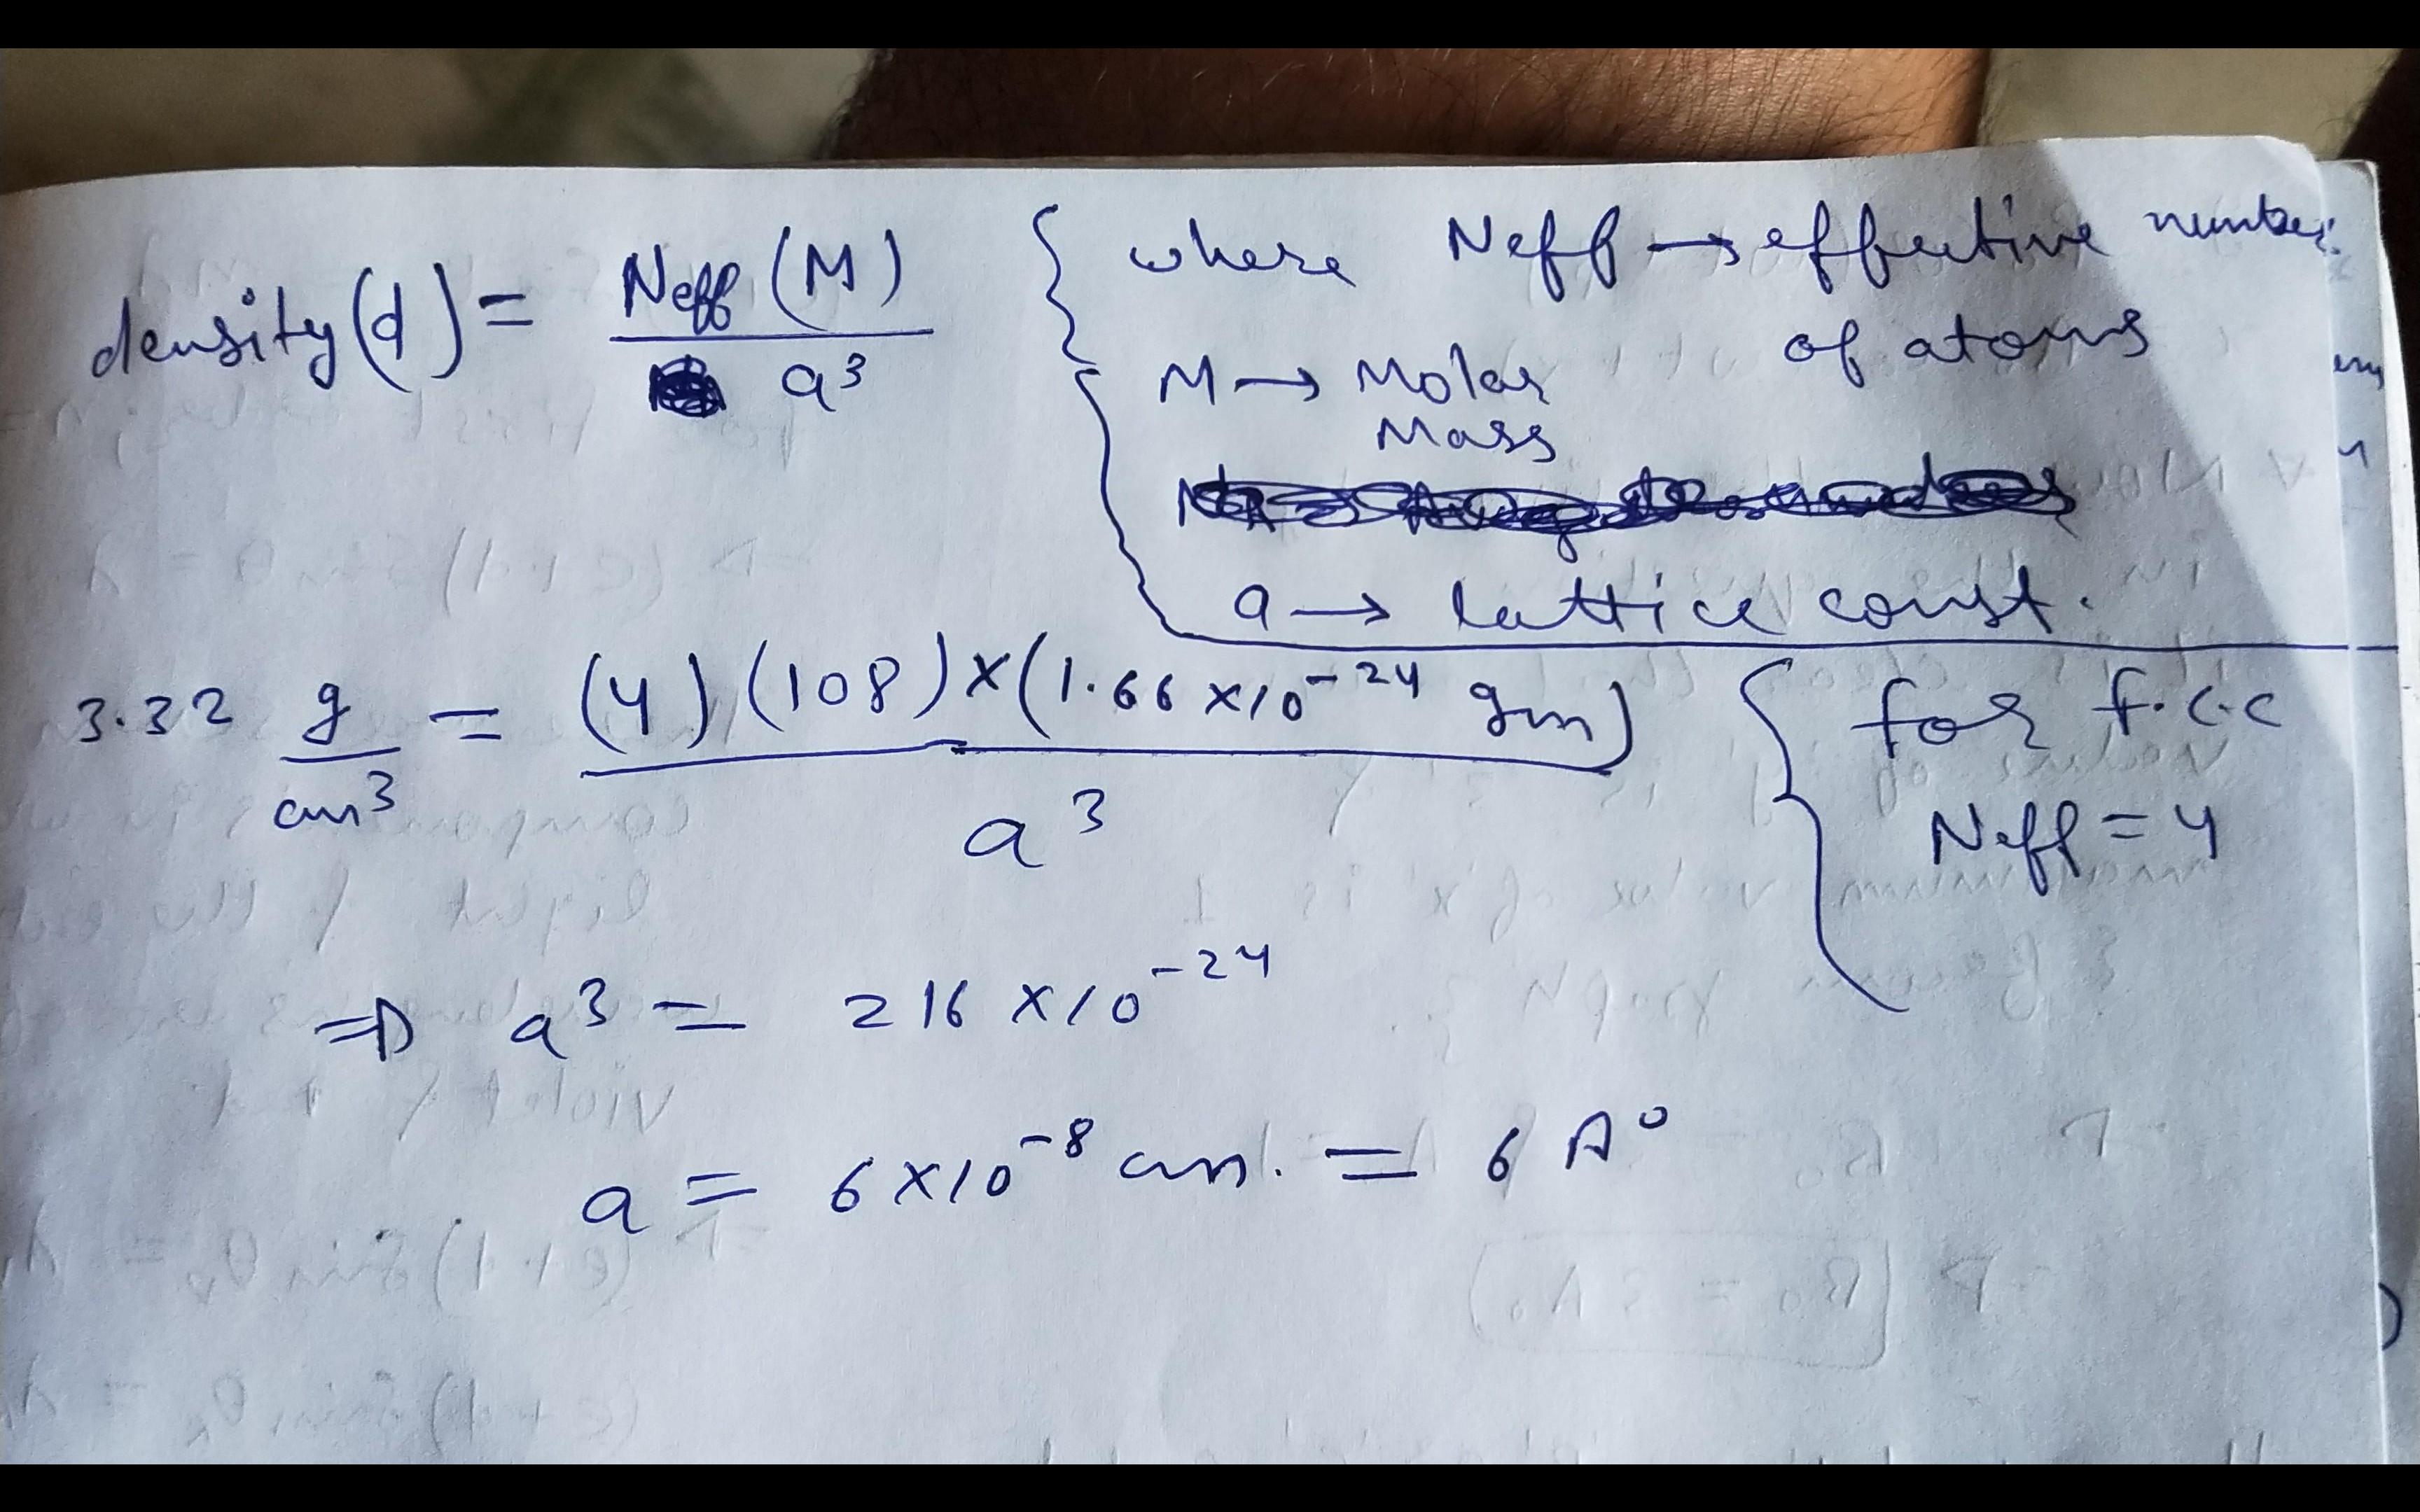 density(d) = Neff(M) / a³
{ where Neff → effective number
of atoms
M → Molar
Mass
a → lattice const.
3.32 g/cm³ = (4)(108)×(1.66×10⁻²⁴ gm) / a³
{ for f.c.c
Neff = 4
⇒ a³ = 216 × 10⁻²⁴
a = 6×10⁻⁸ cm. = 6 A°